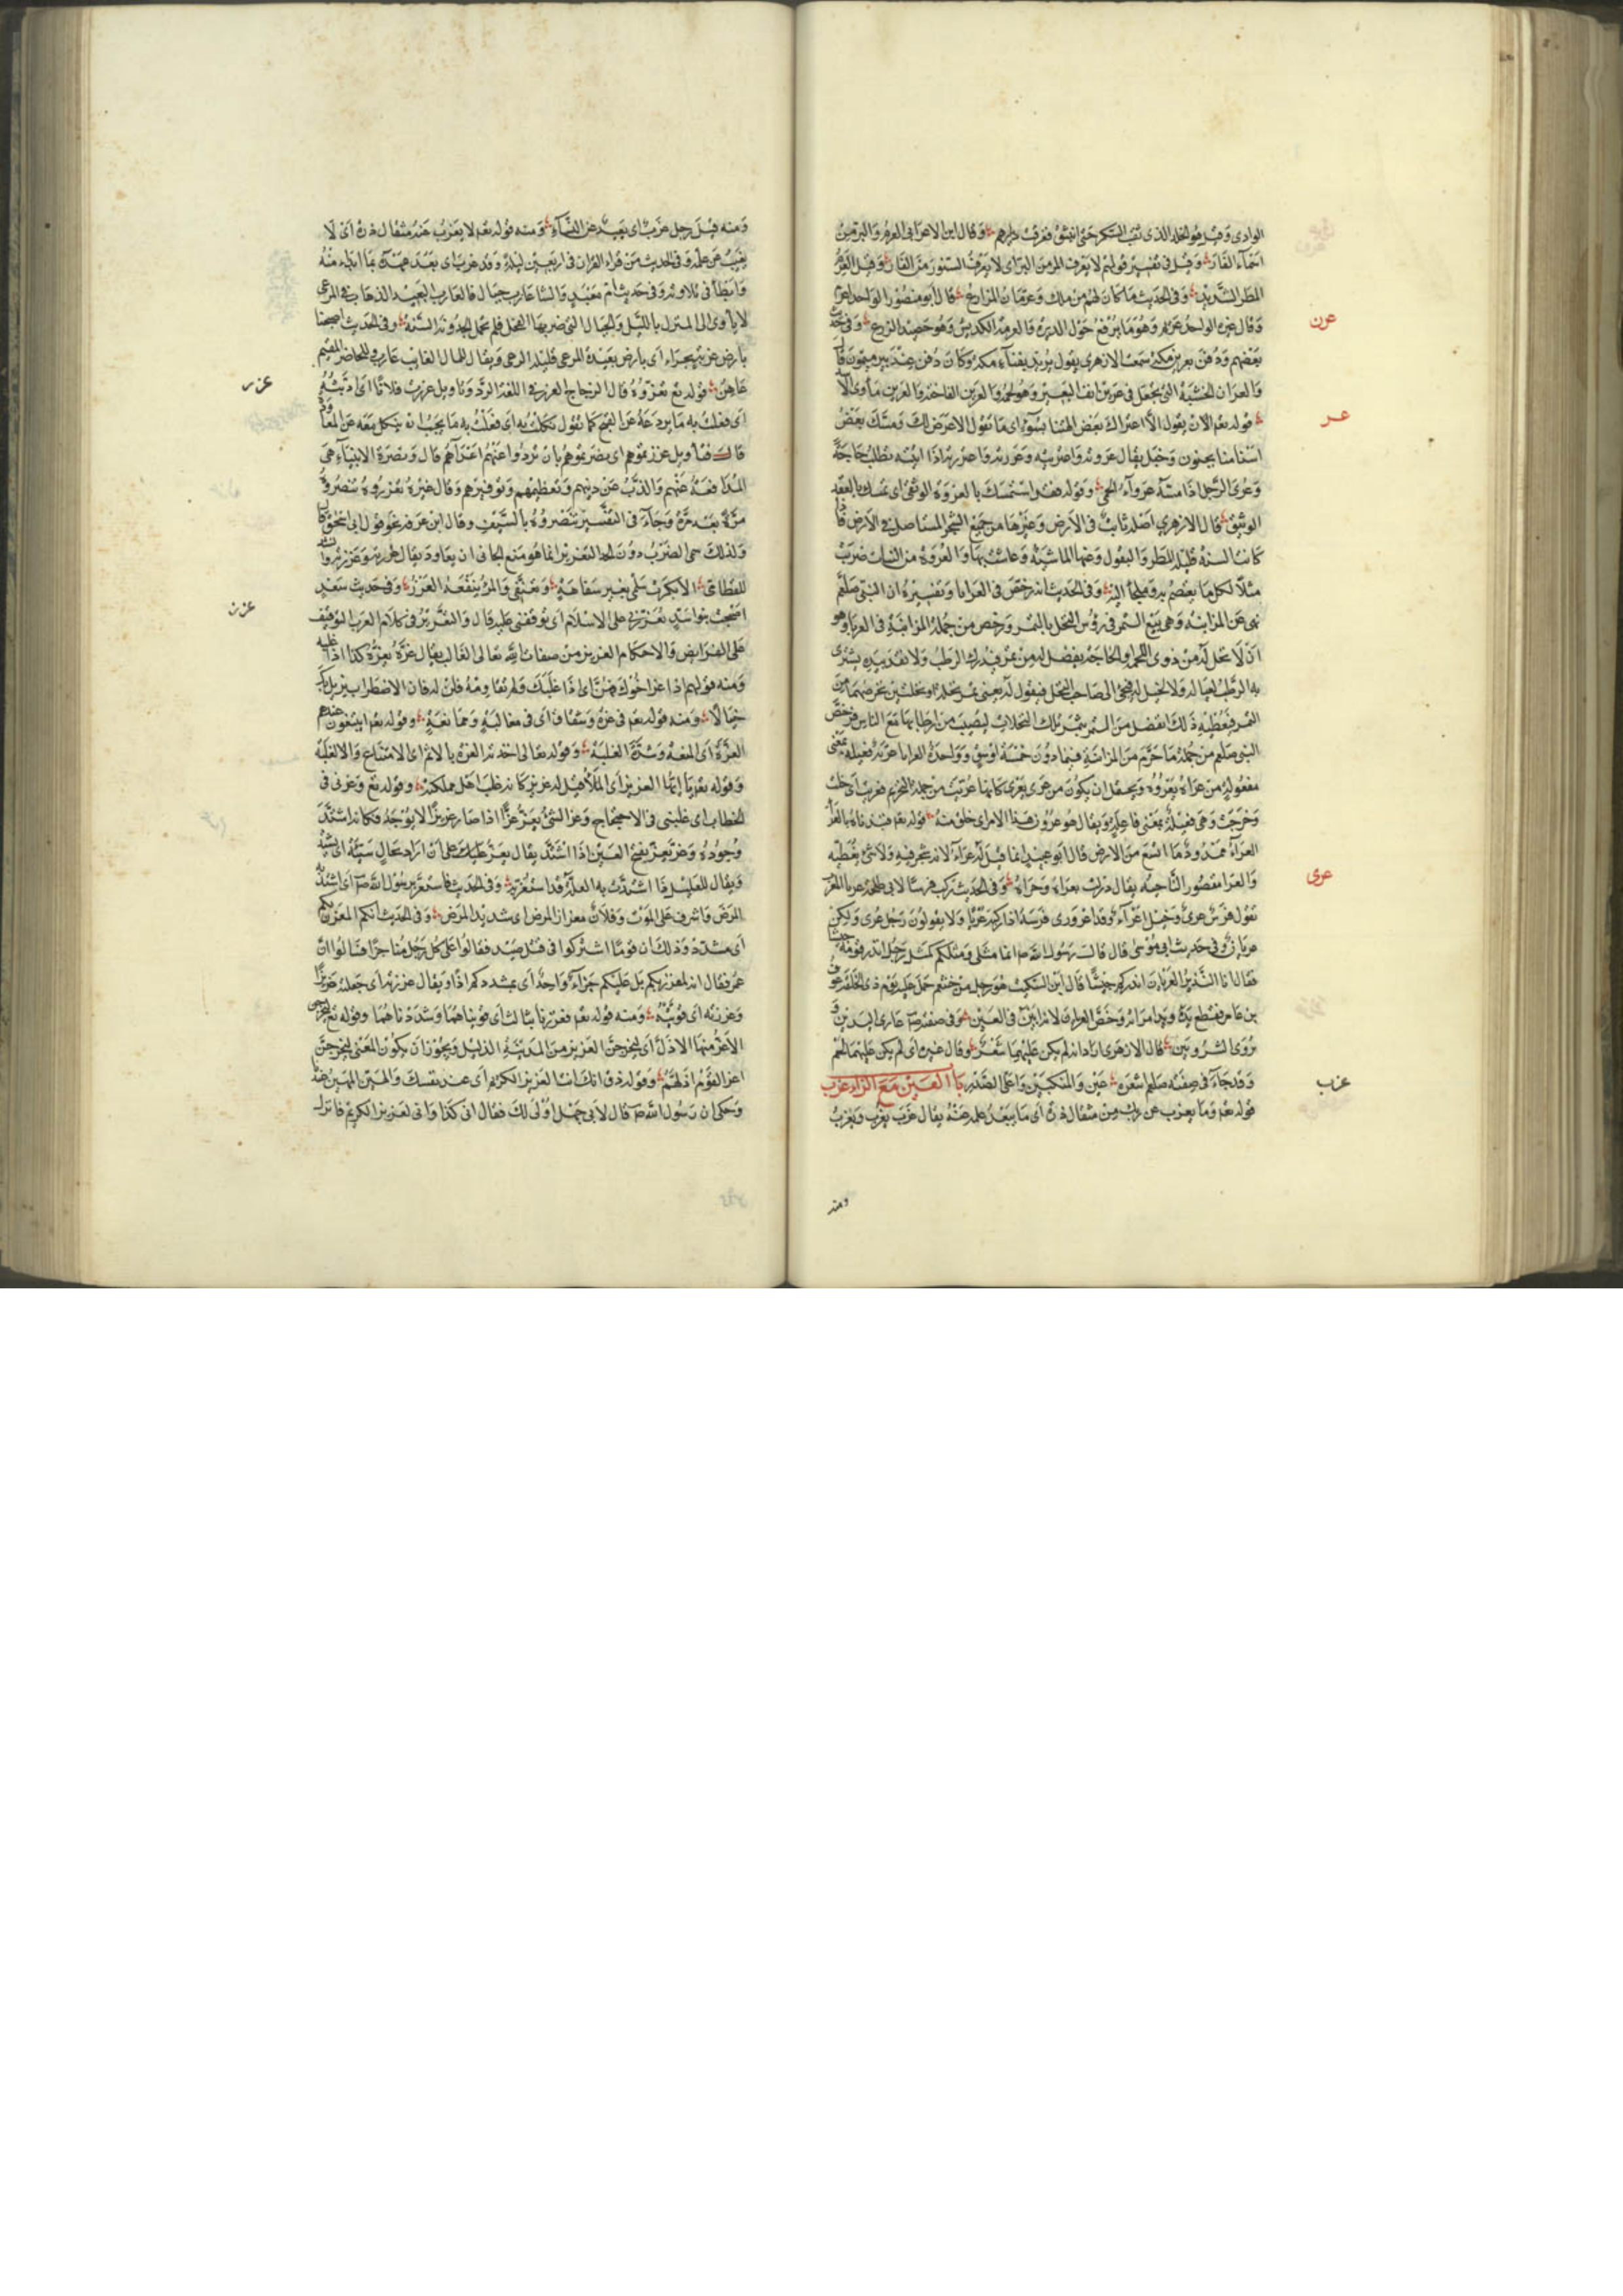 الوادى وقيل هو الخلد الذى نقب السكر حتى انبثق فغرقت ديارهم وقال ابن الاعرابى العرم والبر من
اسماء الفار وقيل فى تفسير قولهم لا يعرف الهر من البر اى لا يعرف السنور من الفار وقيل العرم
المطر الشديد وفى الحديث ما كان لهم من ملك وعرمان المزارع قال ابو منصور الواحد
وقال غيره الواحد عرمة وهو ما يرفع حول الدبرة والعرمة الكديس وهو حصيد الزرع وفى
عرن
بعضهم ودفن بعرين مكة سمعت الازهرى يقول يريد بفناء مكة وكان دفن عند بير ميمون
والعران الخشبة التى يجعل فى عرنين انف البعير وهو والعرين الفاخته والعرين ماوى
عر
قوله تعم الان يقول الا اعتراك بعض الهتنا بسوء اى ما نقول الا عرض لك ومسك بعض
اصنامنا بجنون وخبل يقال عروته واعتريته وعررته واعتررته اذا اتيته تطلب حاجة
وعرى الرجل اذا مسه عرواء الحمى وقوله فقد استمسك بالعروة الوثقى اى تمسك بالعقد
الوثيق قال الازهري اصله ثابت فى الارض وغيرها من جميع الشجر المستاصل فى الارض
كانت السنة قليلة المطر والبقول رعتها الماشية وعاشت بها والعروة من النبات ضربت
مثلا لكل ما يعتصم به ويلجأ اليه وفى الحديث انه رخص فى العرايا وتفسيره ان النبى صلعم
نهى عن المزابنة وهى بيع الثمر فى رؤس النخل بالتمر ورخص من جملة المزابنة فى العرايا وهو
ان لا نخل له من ذوى اللحم والحاجة يفضل له من قيدرك الرطب ولا نقد بيده يشترى
به الرطب لعياله ولا نخيل له فيجى الى صاحب النخل فيقول له بعنى ثمر نخلة او نخلتين بخرصهما من
التمر فيعطيه ذلك الفضل من التمر بثمر تلك النخلات ليصيب من ارطابها مع الناس فرخص
النبى صلعم من جملة ما حرم من المزابنة فيما دون خمسة اوسق وواحدة العرايا عرية فعيلة بمعنى
مفعولة من عراه يعروه ويحتمل ان يكون من عرى يعرى كانها عريت من جملة التحريم فعريت اى خلت
وخرجت وهى فعيلة بمعنى فاعلة ويقال هو عرو من هذا الامر اى خلو منه قوله تعم فنبذناه بالعراء
العراء ممدود ما اتسع من الارض قال ابو عبيد انما قيل له عراء لانه لا شجر فيه ولا شئ يغطيه
عرى
والعرا مقصور الناحيه يقال نزلت بعراه وحراه وفى الحديث ركب فرسا لابى طلحة عريا
تقول فرس عرى وخيل اعراء وقد اعرورى فرسه اذا ركبه عريا ولا يقولون رجل عرى ولكن
عريان وفى حديث ابى موسى قال قال رسول الله ص انما مثلى ومثلكم كمثل رجل انذر قومه
فقال انا النذير العريان انذركم جيشا قال ابن السكيت هو رجل من خثعم حمل عليه يوم ذى الخلصة عوف
بن عامر فقطع يده ويد امراته وخص العريان لانه ابين فى العين وفى صفته ص عارى الثديين
يروى الثندوتين قال الازهرى اراد انه لم يكن عليهما شعر وقال غيره اى لم يكن عليهما لحم
عزب
وقد جاء فى صفته صلعم اشعر عين والمنكبين واعلى الصدر باب العين مع الزاء عزب
قوله تعم وما يعزب عن ربك من مثقال ذرة اى ما يبعد علمه عنه يقال عزب يعزب ويعزب
ومنه
ومنه قيل رجل عزب اى بعيد عن النساء ومنه قوله تعم لا يعزب عنه مثقال ذرة اى لا
يغيب عن علمه وفى الحديث من قراء القران فى اربعين ليلة وقد عزب اى بعد عهده بما ابتداء منه
وابطأ فى تلاوته وفى حديث ام معبد والشا عازب حيال فالعازب البعيد الذهاب فى المرعى
لا ياوى الى المنزل بالليل والحيال التى ضربها الفحل فلم تحمل لجدوبة السنة وفى الحديث اصبحنا
بارض عزبة بجراء اى بارض بعيدة المرعى قليلة الرعى ويقال للمال الغايب عازب وللحاضر المقيم
عزر
عاهن قوله تع تعزروه قال الزجاج العزر فى اللغة الرد وتاويل عزرت فلانا اى ادبته
اى فعلت به ما يردعه عن القبح كما تقول نكلت به اى فعلت به ما يجب ان ينكل معه عن المعاودة
قال فتاويل عزرتموهم اى نصرتموهم بان تردوا عنهم اعداءهم قال ونصرة الانبياء هى
المدافعة عنهم والذب عن دينهم وتعظيمهم وتوقيرهم وقال غيره تعزروه تنصروه
مرة بعد مرة وجاء فى التفسير تنصروه بالسيف وقال ابن عرفة نحو قول ابى اسحق
ولذلك سمى الضرب دون الحد التعزير انما هو منع الجانى ان يعاود يقال عزرته وعزرته
للقطامى الا بكرت سلمى بغير سفاهة وتعنفى والمرء ينفعه العزر وفى حديث سعد
عزز
اصبحت بنو اسد تعزرنى على الاسلام اى توقفنى عليه قال والتعزير فى كلام العرب التوقيف
على الفرايض والاحكام العزيز من صفات الله تعالى الغالب يقال عزه يعزه كذا اذا غلبه
ومنه قولهم اذا عز اخوك فهن اى اذا غلبك ولم تقاومه فلن له فان الاضطراب يزيدك
خبالا ومنه قوله تعم فى عزة وشقاق اى فى مغالبة وممانعة وقوله تعم ايبتغون عندهم
العزة اى المنعة وشدة الغلبة وقوله تعالى اخذته العزة بالاثم اى الامتناع والانغلبة
وقوله تعم يا ايها العزيز اى الملك قيل له عزيز كانه غلب اهل مملكته وقوله تع وعزنى فى
الخطاب اى غلبنى فى الاحتجاج وعز الشئ يعز عزا اذا صار عزيزا لا يوجد فكانه اشتد
وجوده وعز يعز بفتح العين اذا اشتد يقال يعز عليك على ان اراك بحال سيئة اى يشتد
ويقال للعليل اذا اشتدت به العلة قد استعز به وفى الحديث فاستعز برسول الله ص اى اشتد به
المرض فاشرف على الموت وفلان معزاز المرض اى شديد المرض وفى الحديث انكم المعزز بكم
اى مشدد وذلك ان قوما اشتركوا فى قتل صيد فقالوا على كل رجل منا جزا فسالوا ابن
عمر فقال انه لمعزز بكم بل عليكم جزاء واحد اى مشدد بكم اذا ويقال عززته اى جعلته عزيزا
وعززته اى قويته ومنه قوله تعم فعززنا بثالث اى قويناهما وشددناهما وقوله تع ليخرجن
الاعز منها الاذل اى ليخرجن العزيز من المدينة الذليل ويجوز ان يكون المعنى ليخرجن
اعز القوم اذلهم وقوله ذق انك انت العزيز الكريم اى عند نفسك والهين المهين عندنا
وحكى ان رسول الله ص قال لابى جهل اولى لك فقال انى كذا وانى لعزيز الكريم فانزل